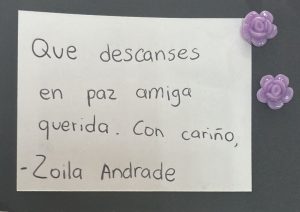 Que descanses
en paz amiga
querida. Con cariño,
-Zoila Andrade